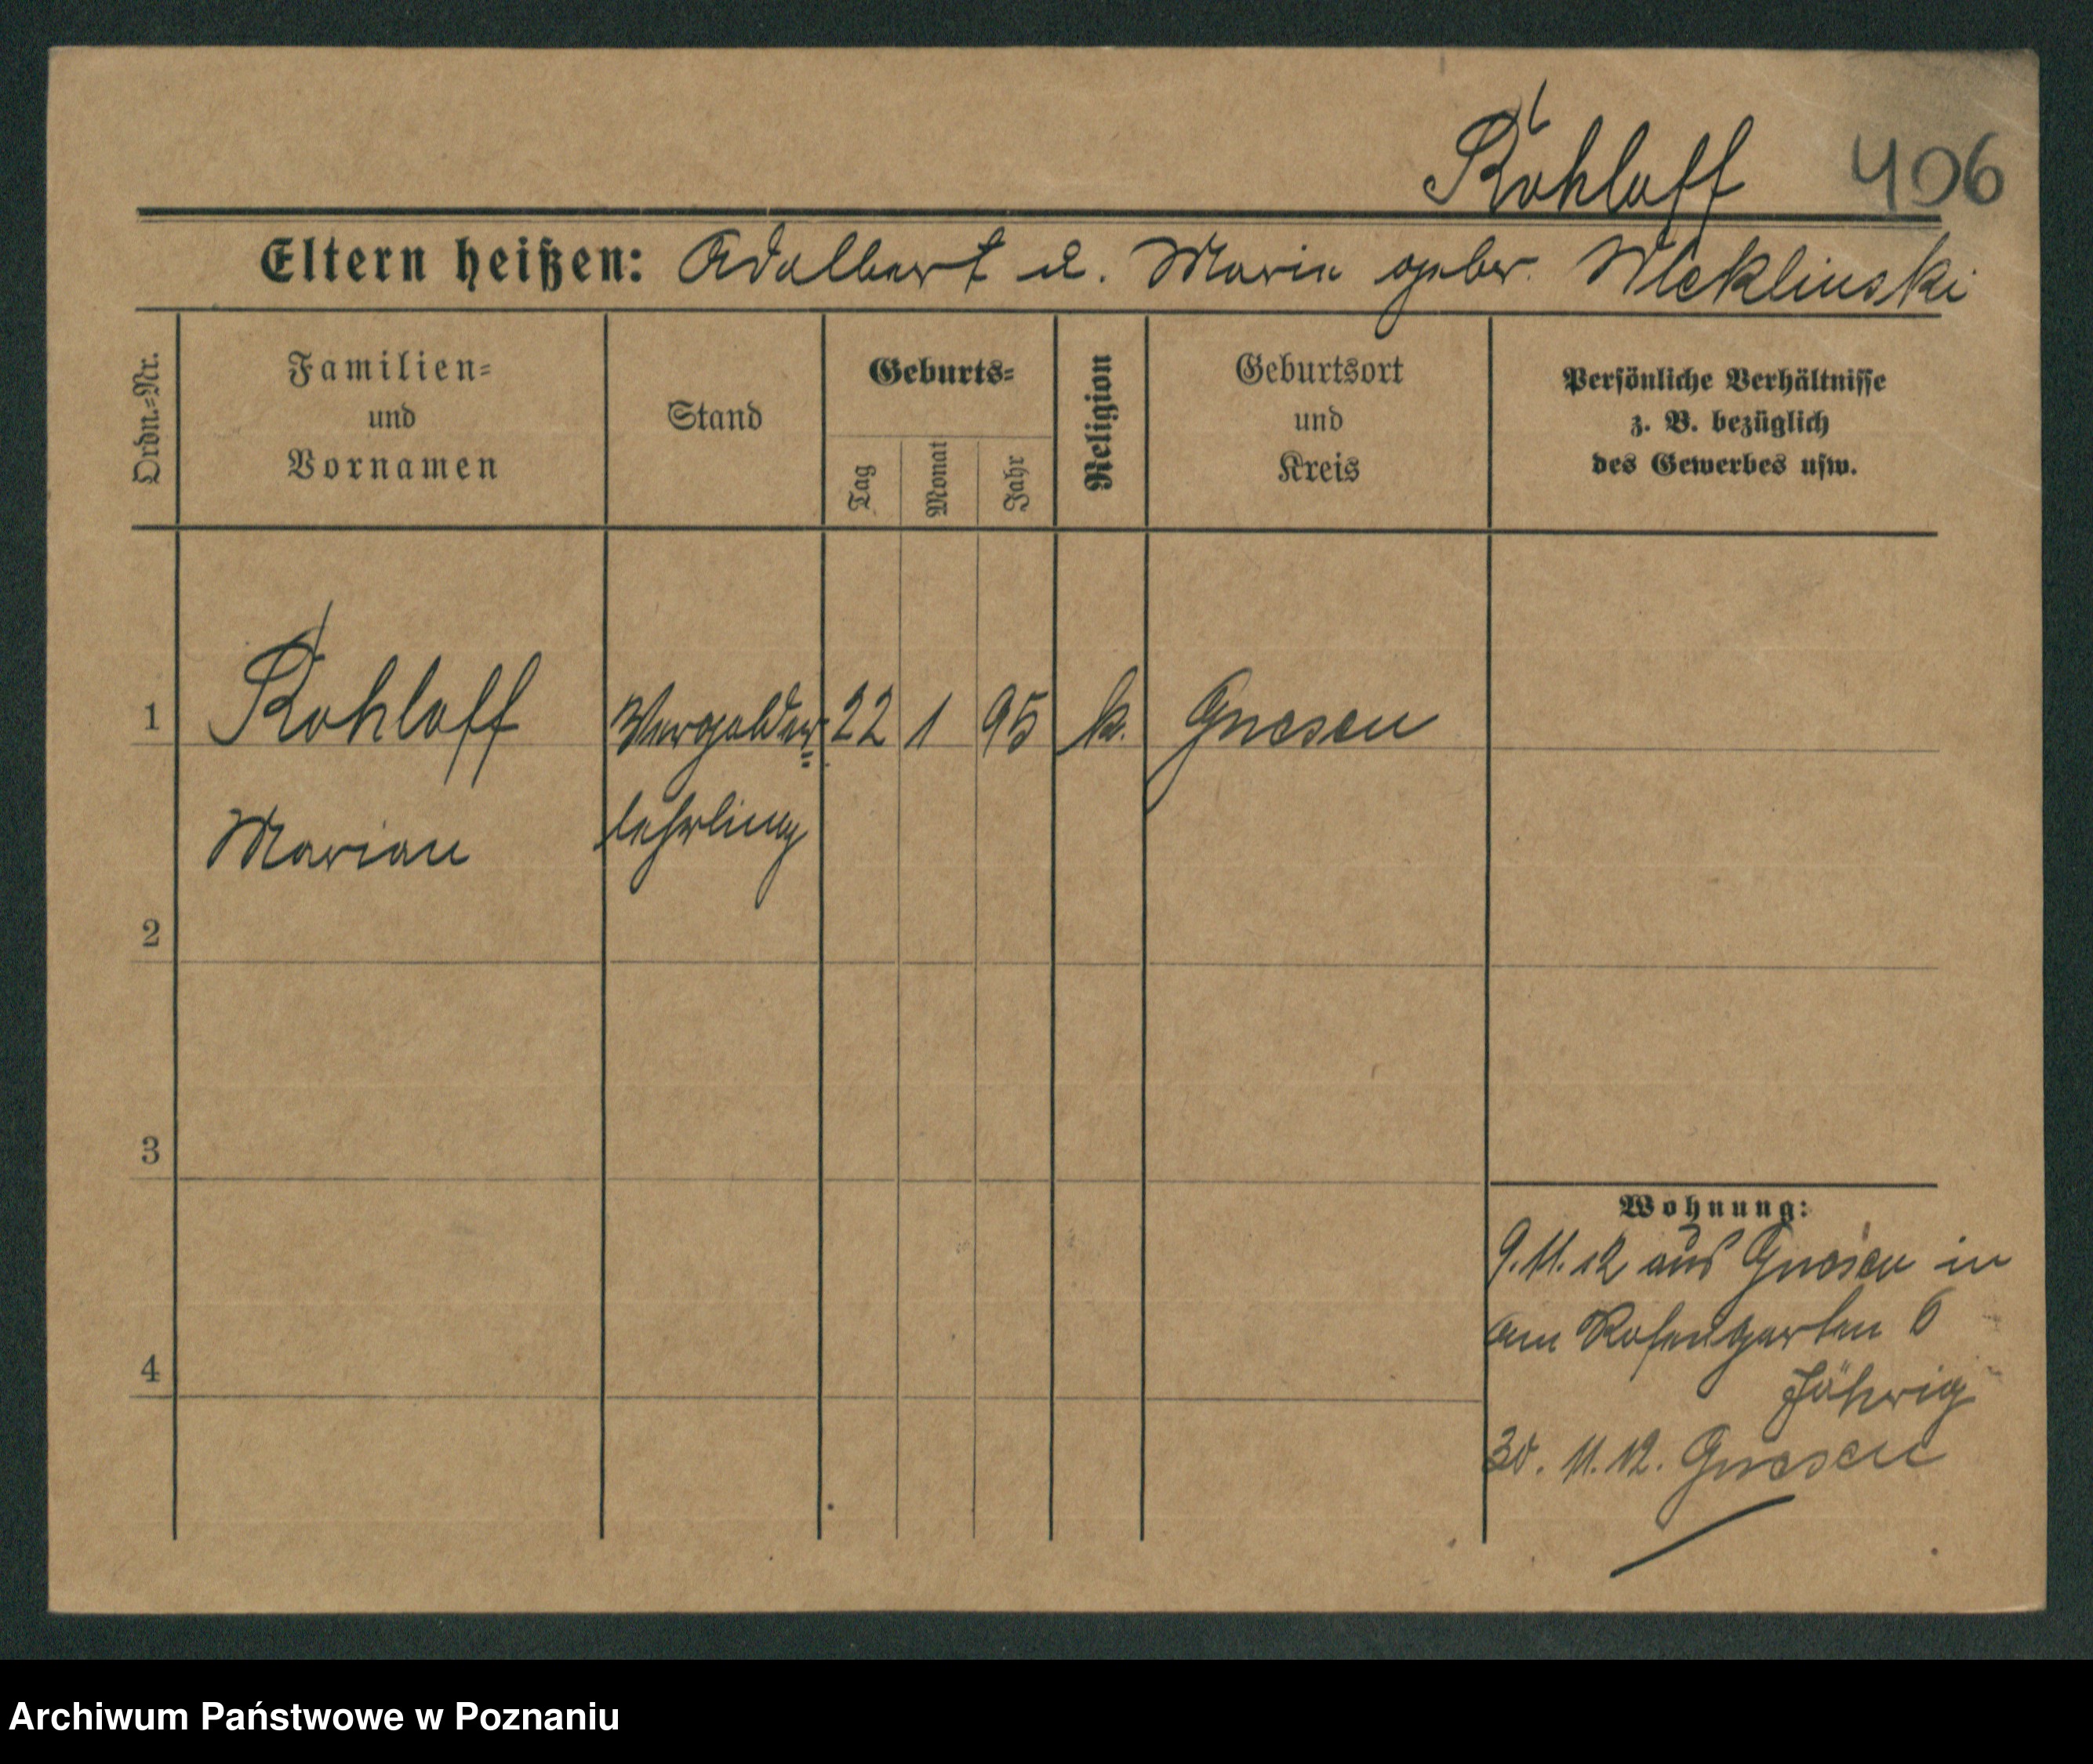 Rohloff 406
Eltern heißen: Adalbert u. Marie geber.
Ordn.=Nr.
Familien=
und
Vornamen
Stand
Geburts=
Tag
Monat
Jahr
Religion
Geburtsort
und
Kreis
Persönliche Verhältnisse
z. B. bezüglich
des Gewerbes usw.
1 Rohloff Vergolder= 22 1 95 k. Gnesen
Marian lehrling
2
3
4
Wohnung:
9.11.12 aus Gnesen in
am Rosengarten 6
30. 11. 12. Gnesen
Archiwum Państwowe w Poznaniu